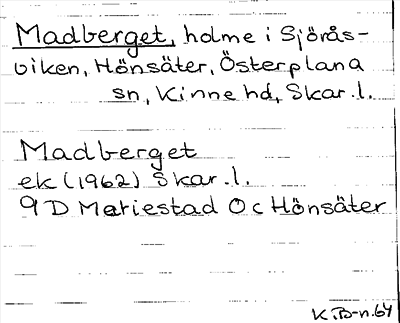 Madberget, holme i Sjörås-
viken, Hönsäter, Österplana
sn, Kinne hd, Skar. l.
Madberget
ek (1962) Skar. l.
9 D Mariestad Oc Hönsäter
K B-n. 64